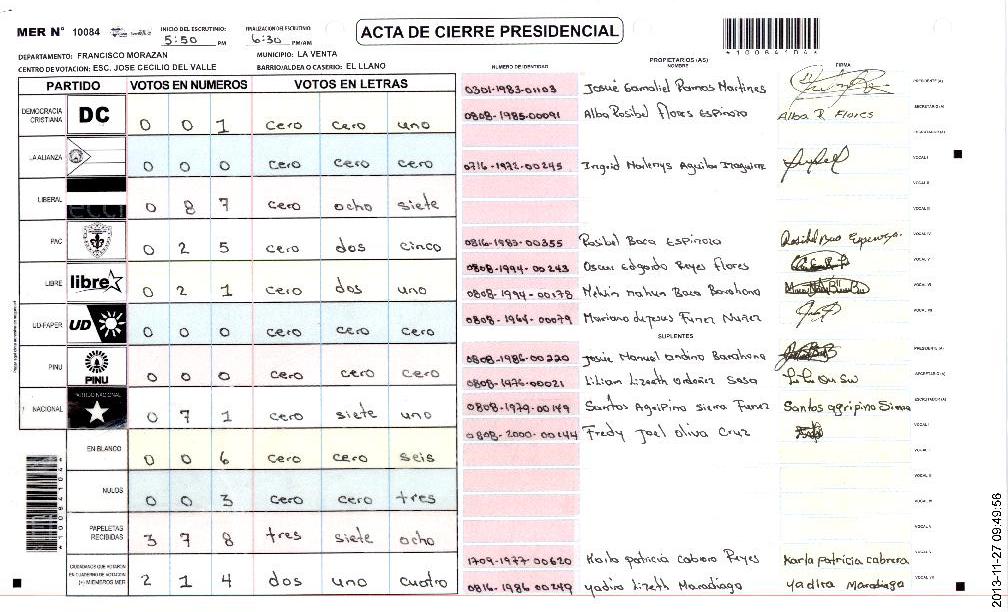 MER N° 10084
INICIO DEL ESCRUTINIO:
5:50 PM
FINALIZACION DEL ESCRUTINIO
6:30 PM/AM
ACTA DE CIERRE PRESIDENCIAL
DEPARTAMENTO: FRANCISCO MORAZAN
MUNICIPIO: LA VENTA
CENTRO DE VOTACION: ESC. JOSE CECILIO DEL VALLE
BARRIO/ALDEA O CASERIO: EL LLANO
PARTIDO VOTOS EN NUMEROS VOTOS EN LETRAS
DEMOCRACIA CRISTIANA DC 0 0 1 cero cero uno
LA ALIANZA 0 0 0 cero cero cero
LIBERAL 0 8 7 cero ocho siete
PAC 0 2 5 cero dos cinco
LIBRE libre 0 2 1 cero dos uno
UD/FAPER UD 0 0 0 cero cero cero
PINU PINU 0 0 0 cero cero cero
NACIONAL PARTIDO NACIONAL 0 7 1 cero siete uno
EN BLANCO 0 0 6 cero cero seis
NULOS 0 0 3 cero cero tres
PAPELETAS RECIBIDAS 3 7 8 tres siete ocho
CIUDADANOS QUE VOTARON EN CUADERNO DE VOTACION (+) MIEMBROS MER 2 1 4 dos uno cuatro
NUMERO DE IDENTIDAD PROPIETARIOS (AS) NOMBRE FIRMA
0301-1983-01103 Josué Gamaliel Ramos Martines PRESIDENTE (A)
0808-1985-00091 Alba Rosibel Flores Espinoza Alba R Flores SECRETARIO (A)
0716-1972-00245 Ingrid Aguilar VOCAL I
VOCAL II
VOCAL III
0816-1983-00355 Rosibel Baca Espinoza VOCAL IV
0808-1994-00243 Oscar Edgardo Reyes Flores VOCAL V
0808-1994-00178 Melvin nahun Baca Barahona VOCAL VI
0808-1964-00079 Mariano dejesus Funez Nuñez VOCAL VII
SUPLENTES
0808-1986-00220 Josue Manuel andino Barahona PRESIDENTE (A)
0808-1976-00021 Liliam Lizeth ordoñez Sosa
0808-1979-00149 Santos Agripino sierra Funez Santos agripino Sierra
0808-2000-00144 Fredy Joel oliva Cruz VOCAL I
1709-1977-00620 Karla patricia cabrera Reyes Karla patricia cabrera
0816-1986-00249 Yadira Lizeth Maradiaga Yadira Maradiaga
2013-11-27 09:49:56